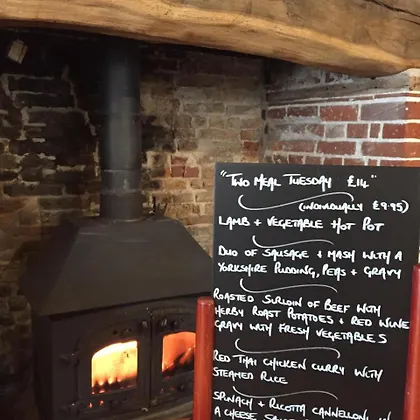 "TWO MEAL TUESDAY £14"
(INDIVIDUALLY £9.95)
LAMB + VEGETABLE HOT POT
DUO OF SAUSAGE + MASH WITH A
YORKSHIRE PUDDING, PEAS + GRAVY
ROASTED SIRLOIN OF BEEF WITH
HERBY ROAST POTATOES + RED WINE
GRAVY WITH FRESH VEGETABLES
RED THAI CHICKEN CURRY WITH
STEAMED RICE
SPINACH + RICOTTA CANNELLONI IN
A CHEESE